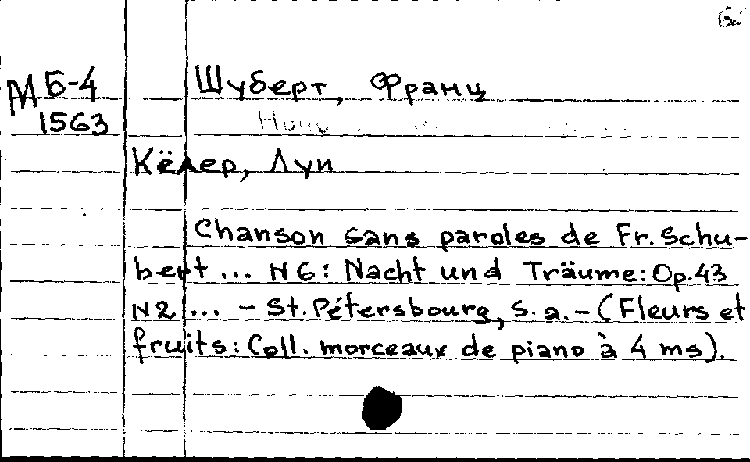 М Б-4 Шуберт, Франц
1563
Кёлер, Луи
Chanson sans paroles de Fr. Schu-
bert... N 6: Nacht und Träume: Op. 43
N2 ... - St. Pétersbourg, s. a. - (Fleurs et
fruits: Coll. morceaux de piano à 4 ms).